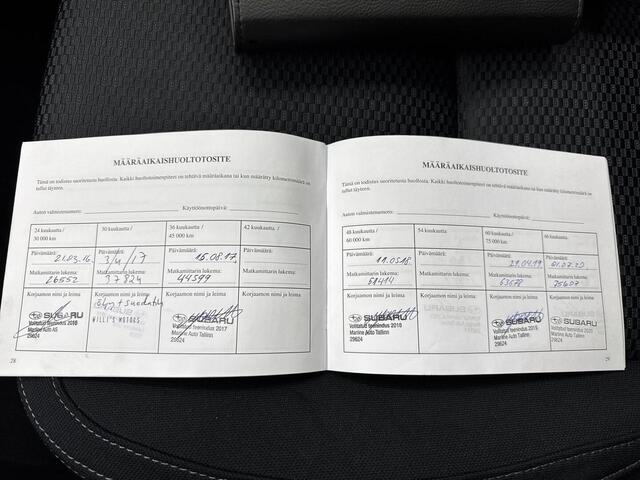 MÄÄRÄAIKAISHUOLTOTOSITE
Tämä on todistus suoritetusta huollosta. Kaikki huoltotoimenpiteet on tehtävä määräaikana tai kun määrätty kilometrimäärä on
tullut täyteen.
Auton valmistenumero: Käyttöönottopäivä:
24 kuukautta / 30 kuukautta / 36 kuukautta / 42 kuukautta /
30 000 km 45 000 km
Päivämäärä: Päivämäärä: Päivämäärä: Päivämäärä:
21.03.16 3/4/17 15.08.17
Matkamittarin lukema: Matkamittarin lukema: Matkamittarin lukema: Matkamittarin lukema:
26552 37824 44599
Korjaamon nimi ja leima Korjaamon nimi ja leima Korjaamon nimi ja leima Korjaamon nimi ja leima
SUBARU WILLI'S MOTORS SUBARU
Volitatud teenindus 2016 Volitatud teenindus 2017
Mariine Auto AS Mariine Auto Tallinn
29624 29624
28
MÄÄRÄAIKAISHUOLTOTOSITE
Tämä on todistus suoritetusta huollosta. Kaikki huoltotoimenpiteet on tehtävä määräaikana tai kun määrätty kilometrimäärä on
tullut täyteen.
Auton valmistenumero: Käyttöönottopäivä:
48 kuukautta / 54 kuukautta / 60 kuukautta / 66 kuukautta
60 000 km 75 000 km
Päivämäärä: Päivämäärä: Päivämäärä: Päivämäärä:
Matkamittarin lukema: Matkamittarin lukema: Matkamittarin lukema: Matkamittarin lukema:
63678 75607
Korjaamon nimi ja leima Korjaamon nimi ja leima Korjaamon nimi ja leima Korjaamon nimi ja leima
SUBARU SUBARU SUBARU
Volitatud teenindus 2018 Volitatud teenindus Volitatud teenindus 2020
Mariine Auto Tallinn Mariine Auto Tallinn Mariine Auto Tallinn
29624 29624 29624
29